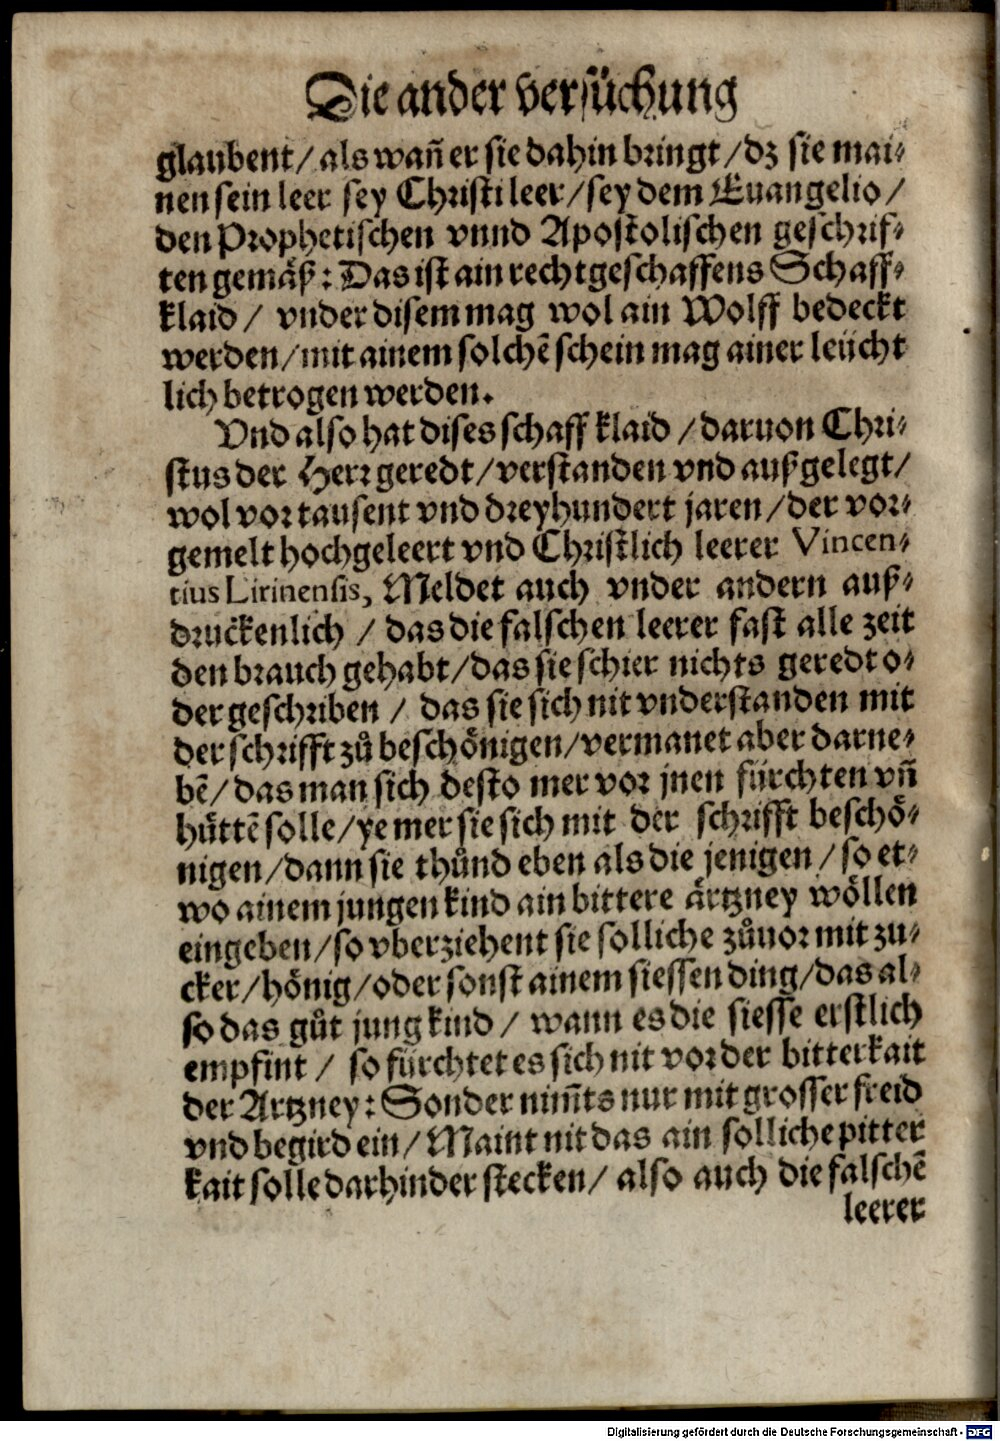 Die ander versůchung
glaubent/ als wañ er sie dahin bringt/ dz sie mai⸗
nen sein leer sey Christi leer/ sey dem Euangelio/
den Prophetischen vnnd Apostolischen geschrif⸗
ten gemäß: Das ist ain rechtgeschaffens Schaff⸗
klaid/ vnder disem mag wol ain Wolff bedeckt
werden/ mit ainem solchē schein mag ainer leücht
lich betrogen werden.
Vnd also hat dises schaff klaid/ daruon Chri⸗
stus der Herr geredt/ verstanden vnd außgelegt/
wol vor tausent vnd dreyhundert jaren/ der vor⸗
gemelt hochgeleert vnd Christlich leerer Vincen⸗
tius Lirinensis, Meldet auch vnder andern auß⸗
druckenlich/ das die falschen leerer fast alle zeit
den brauch gehabt/ das sie schier nichts geredt o⸗
der geschriben/ das sie sich nit vnderstanden mit
der schrifft zů beschönigen/ vermanet aber darne⸗
bē/ das man sich desto mer vor jnen fürchten vñ
hüttē solle/ ye mer sie sich mit der schrifft beschö⸗
nigen/ dann sie thůnd eben als die jenigen/ so et⸗
wo ainem jungen kind ain bittere ärtzney wöllen
eingeben/ so vberziehent sie solliche zůuor mit zu⸗
cker/ hönig/ oder sonst ainem siessen ding/ das al⸗
so das gůt jung kind/ wann es die siesse erstlich
empfint/ so fürchtet es sich nit vor der bitterkait
der Artzney: Sonder nim̃ts nur mit grosser freid
vnd begird ein/ Maint nit das ain solliche pitter
kait solle darhinder stecken/ also auch die falschē
leerer
Digitalisierung gefördert durch die Deutsche Forschungsgemeinschaft - DFG